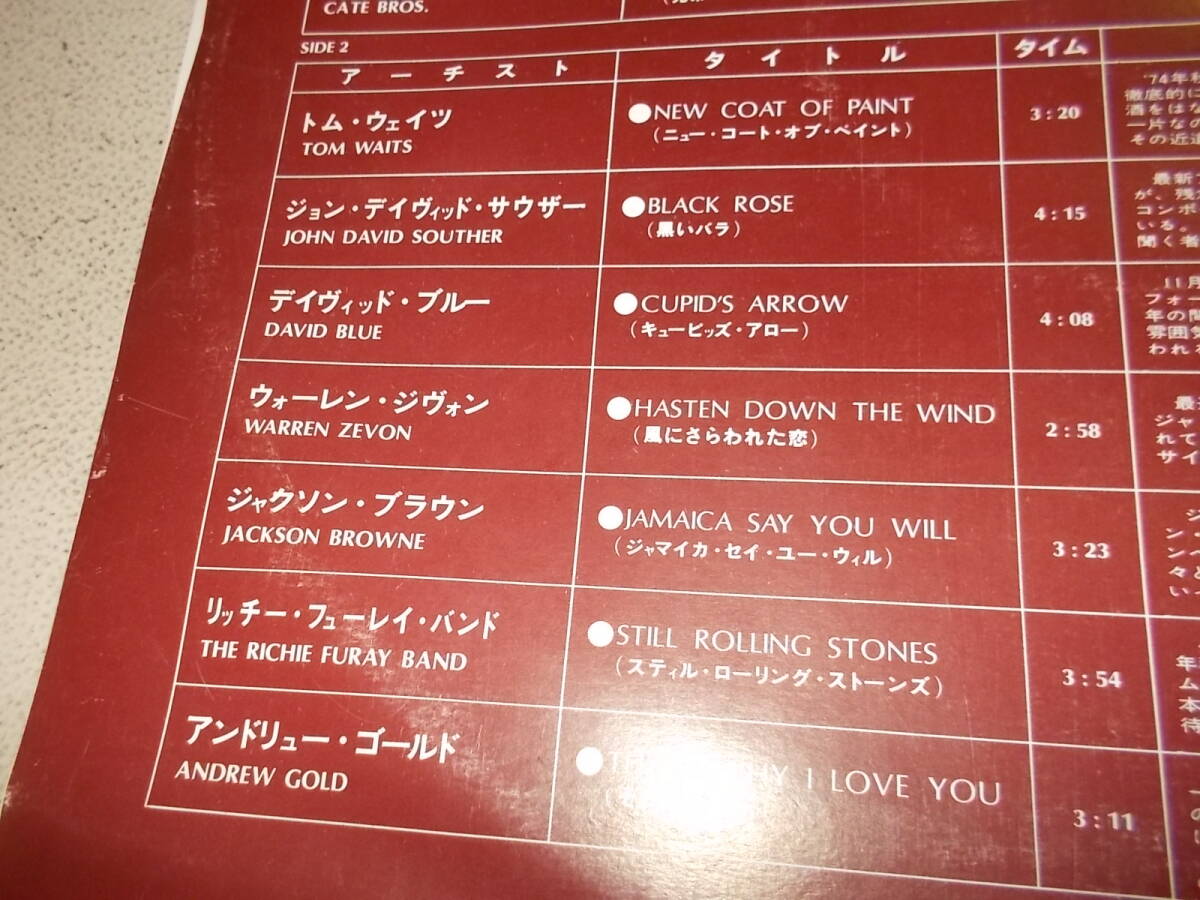 CATE BROS.
SIDE 2
アーチスト タイトル タイム
トム・ウェイツ
TOM WAITS
●NEW COAT OF PAINT
(ニュー・コート・オブ・ペイント)
3:20
'74年
徹底的に
酒をはな
一片なの
その近道
ジョン・デイヴィッド・サウザー
JOHN DAVID SOUTHER
●BLACK ROSE
(黒いバラ)
4:15
最新
が、残
コンポ
いる。
聞く者
デイヴィッド・ブルー
DAVID BLUE
●CUPID'S ARROW
(キューピッズ・アロー)
4:08
11月
フォー
年の間
雰囲気
われる
ウォーレン・ジヴォン
WARREN ZEVON
●HASTEN DOWN THE WIND
(風にさらわれた恋)
2:58
最
ジャ
れて
サイ
ジャクソン・ブラウン
JACKSON BROWNE
●JAMAICA SAY YOU WILL
(ジャマイカ・セイ・ユー・ウィル)
3:23
ジ
ン・
ン
々と
い
リッチー・フューレイ・バンド
THE RICHIE FURAY BAND
●STILL ROLLING STONES
(スティル・ローリング・ストーンズ)
3:54
年
ム
本
待
アンドリュー・ゴールド
ANDREW GOLD
● I LOVE YOU
3:11
の